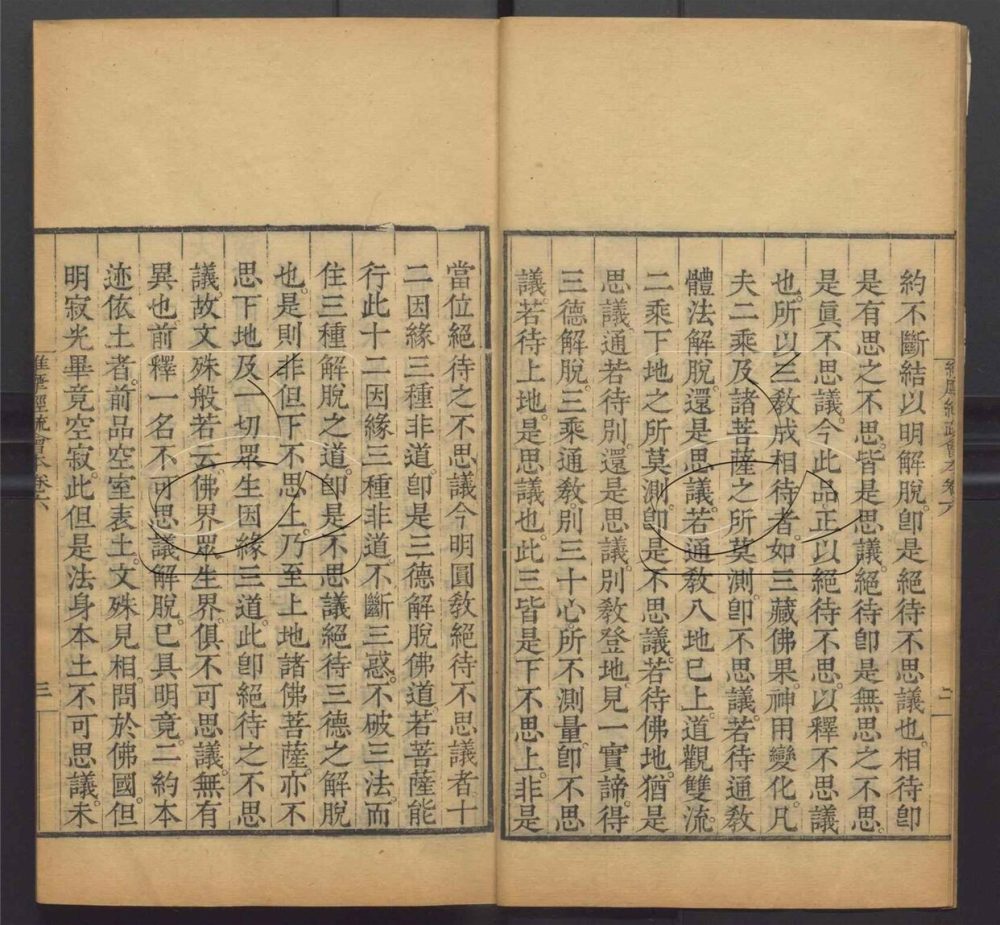 約不斷結以明解脫。卽是絕待不思議也。相待卽
是有思之不思。皆是思議。絕待卽是無思之不思。
是眞不思議。今此品正以絕待不思。以釋不思議
也。所以三敎成相待者。如三藏佛果。神用變化。凡
夫二乘及諸菩薩之所莫測。卽不思議。若待通敎
體法解脫。還是思議。若通敎八地已上。道觀雙流。
二乘下地之所莫測。卽是不思議。若待佛地。猶是
思議。通若待別。還是思議。別敎登地見一實諦。得
三德解脫。三乘通敎。別三十心所不測量。卽不思
議。若待上地。是思議也。此三皆是下不思上。非是
二
當位絕待之不思議。今明圓敎絕待不思議者。十
二因緣三種非道。卽是三德解脫佛道。若菩薩能
行此十二因緣三種非道。不斷三惑。不破三法。而
住三種解脫之道。卽是不思議絕待三德之解脫
也。是則非但下不思上。乃至上地諸佛菩薩。亦不
思下地及一切眾生因緣三道。此卽絕待之不思
議。故文殊般若云。佛界眾生界。俱不可思議。無有
異也。前釋一名不可思議解脫。已具明竟。二約本
迹依土者。前品空室表土。文殊見相。問於佛國。但
明寂光畢竟空寂。此但是法身本土不可思議。未
維摩經疏會本卷六
三